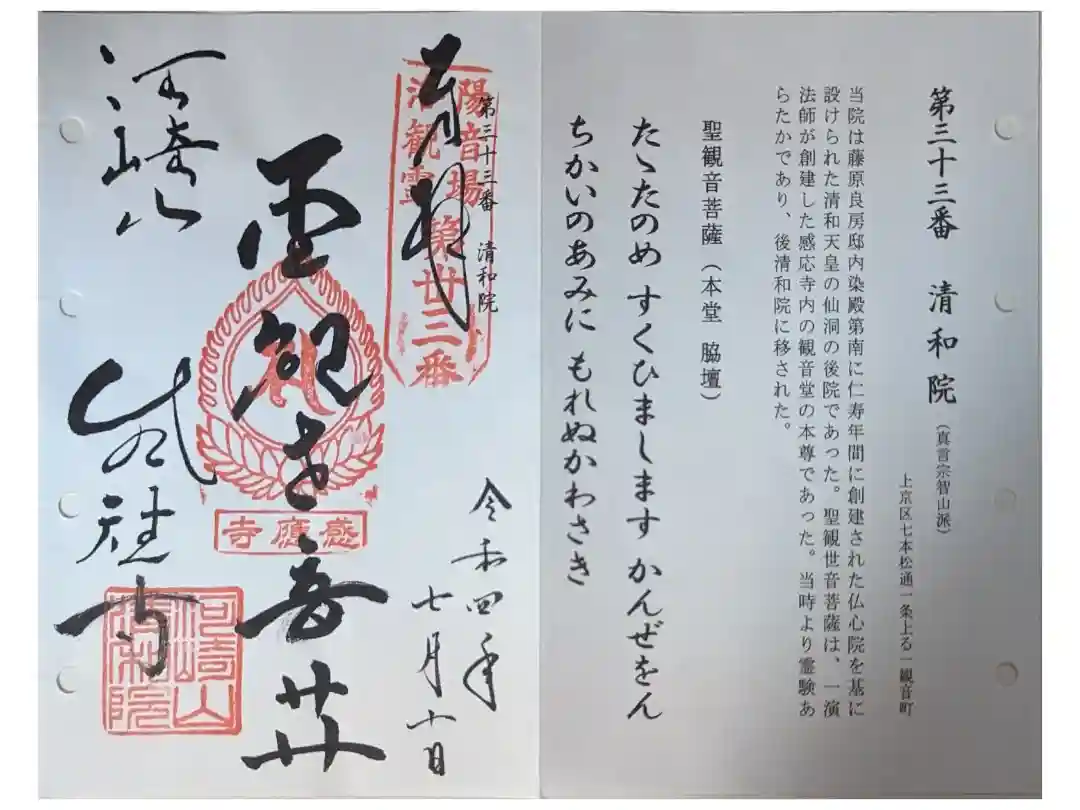 第三十三番 清和院（真言宗智山派）
上京区七本松通一条上る一観音町
当院は藤原良房邸内染殿第南に仁寿年間に創建された仏心院を基に
設けられた清和天皇の仙洞の後院であった。聖観世音菩薩は、一演
法師が創建した感応寺内の観音堂の本尊であった。当時より霊験あ
らたかであり、後清和院に移された。
聖観音菩薩（本堂 脇壇）
たゝたのめ すくひまします かんぜをん
ちかいのあみに もれぬかわさき
第三十三番 清和院
奉拝
洛陽観音霊場
第卅三番
令和四年
七月十日
感應寺
河崎山
河崎山
清和院